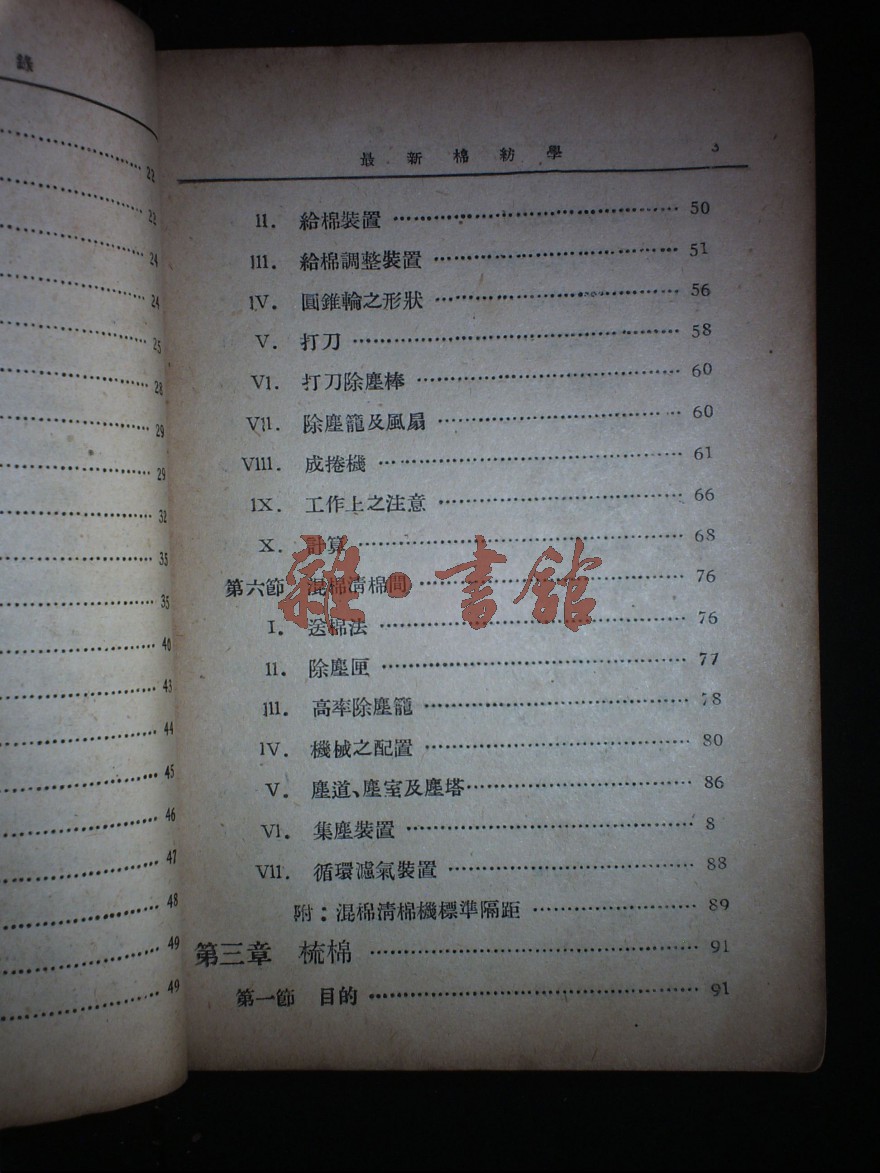 錄
22
22
24
24
25
28
29
29
32
35
35
40
43
44
45
46
47
48
49
49
最新棉紡學 3
II. 給棉裝置 50
III. 給棉調整裝置 51
IV. 圓錐輪之形狀 56
V. 打刀 58
VI. 打刀除塵棒 60
VII. 除塵籠及風扇 60
VIII. 成捲機 61
IX. 工作上之注意 66
X. 計算 68
第六節 混棉淸棉間 76
I. 送棉法 76
II. 除塵匣 77
III. 高率除塵籠 78
IV. 機械之配置 80
V. 塵道、塵室及塵塔 86
VI. 集塵裝置 8
VII. 循環濾氣裝置 88
附：混棉淸棉機標準隔距 89
第三章 梳棉 91
第一節 目的 91
雜·書館